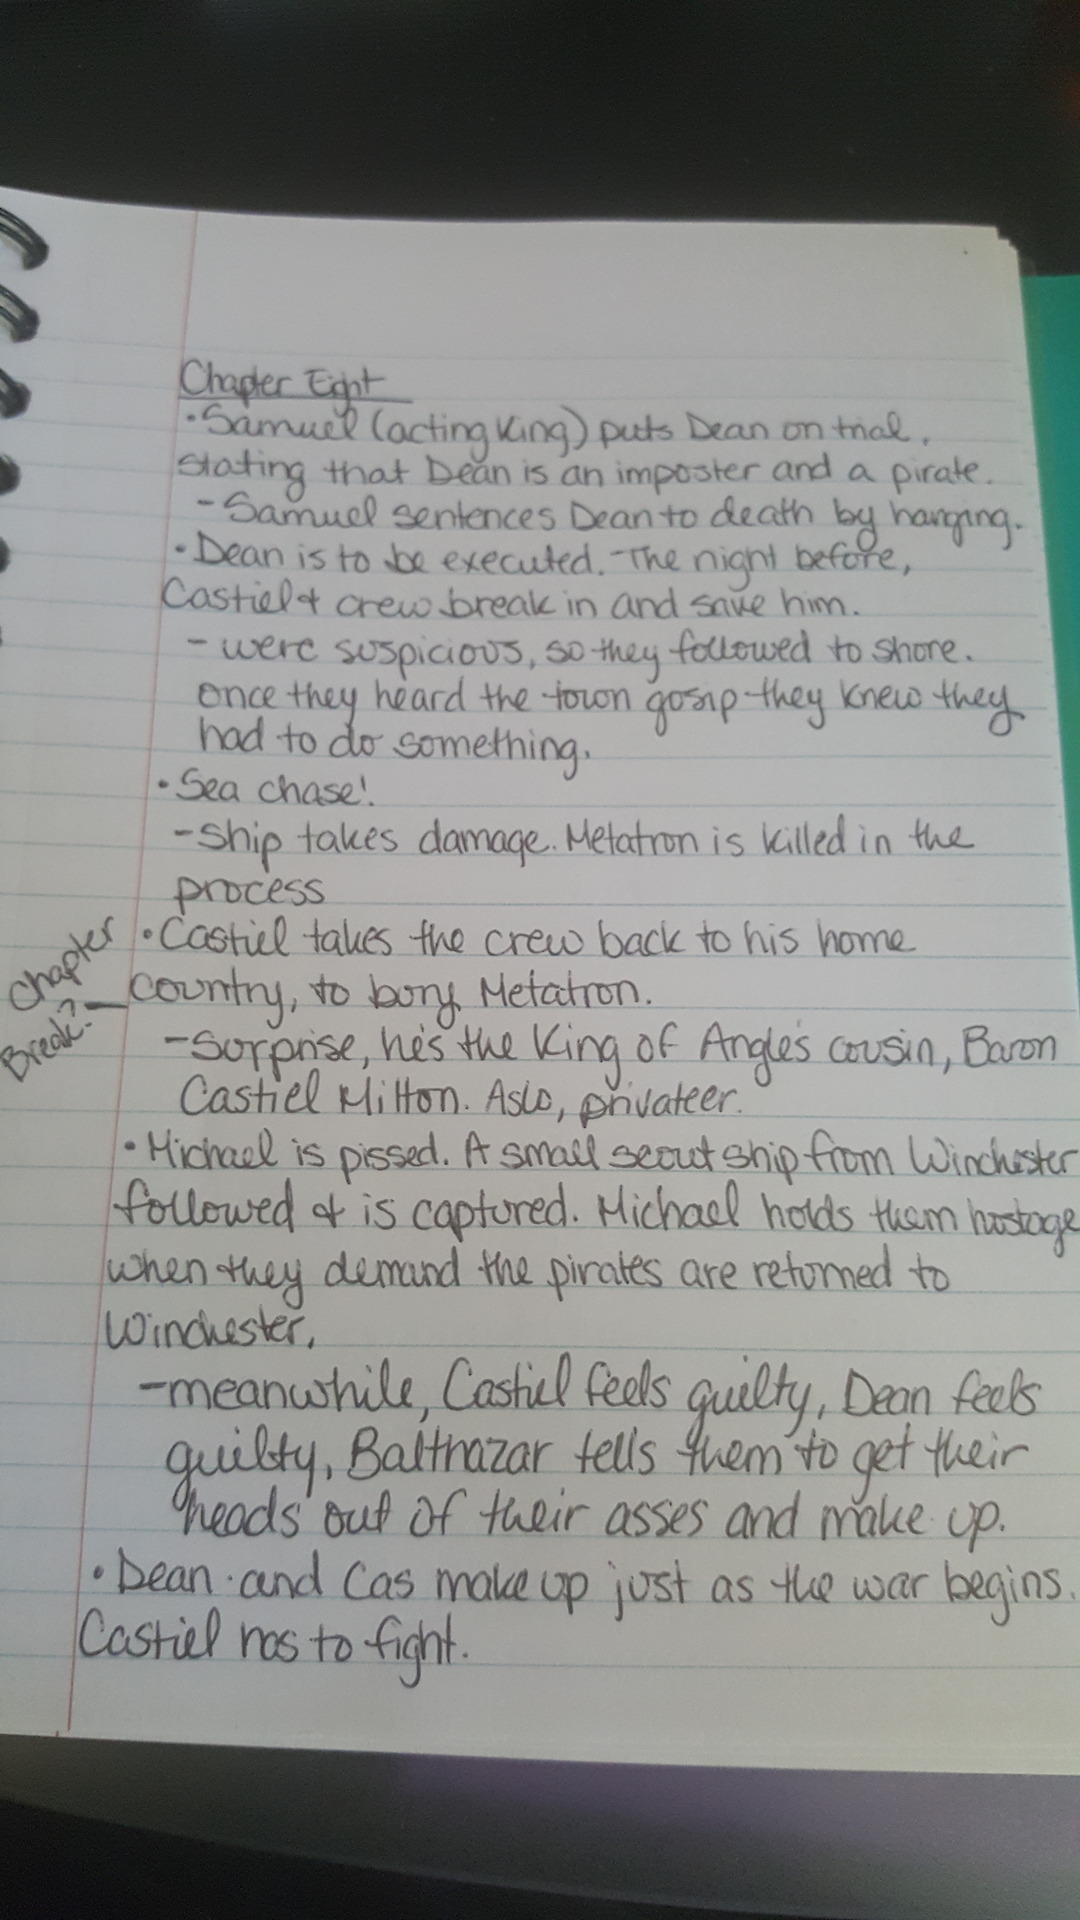 Chapter Eight
• Samuel (acting King) puts Dean on trial,
stating that Dean is an imposter and a pirate.
- Samuel sentences Dean to death by hanging.
• Dean is to be executed. The night before,
Castiel & crew break in and save him.
- were suspicious, so they followed to shore.
once they heard the town gosip they knew they
had to do something.
• Sea chase!
- Ship takes damage. Metatron is killed in the
process
Chapter
Break?
• Castiel takes the crew back to his home
country, to bury Metatron.
- Surprise, he's the King of Angle's cousin, Baron
Castiel Milton. Aslo, privateer.
• Michael is pissed. A small scout ship from Winchester
followed & is captured. Michael holds them hostage
when they demand the pirates are returned to
Winchester.
- meanwhile, Castiel feels guilty, Dean feels
guilty, Balthazar tells them to get their
heads out of their asses and make up.
• Dean and Cas make up just as the war begins.
Castiel has to fight.